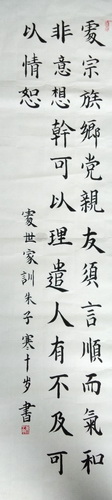 處宗族鄉党親友須言順而氣和
非意想幹可以理遣人有不及可
以情恕
處世家訓朱子寒十岁書